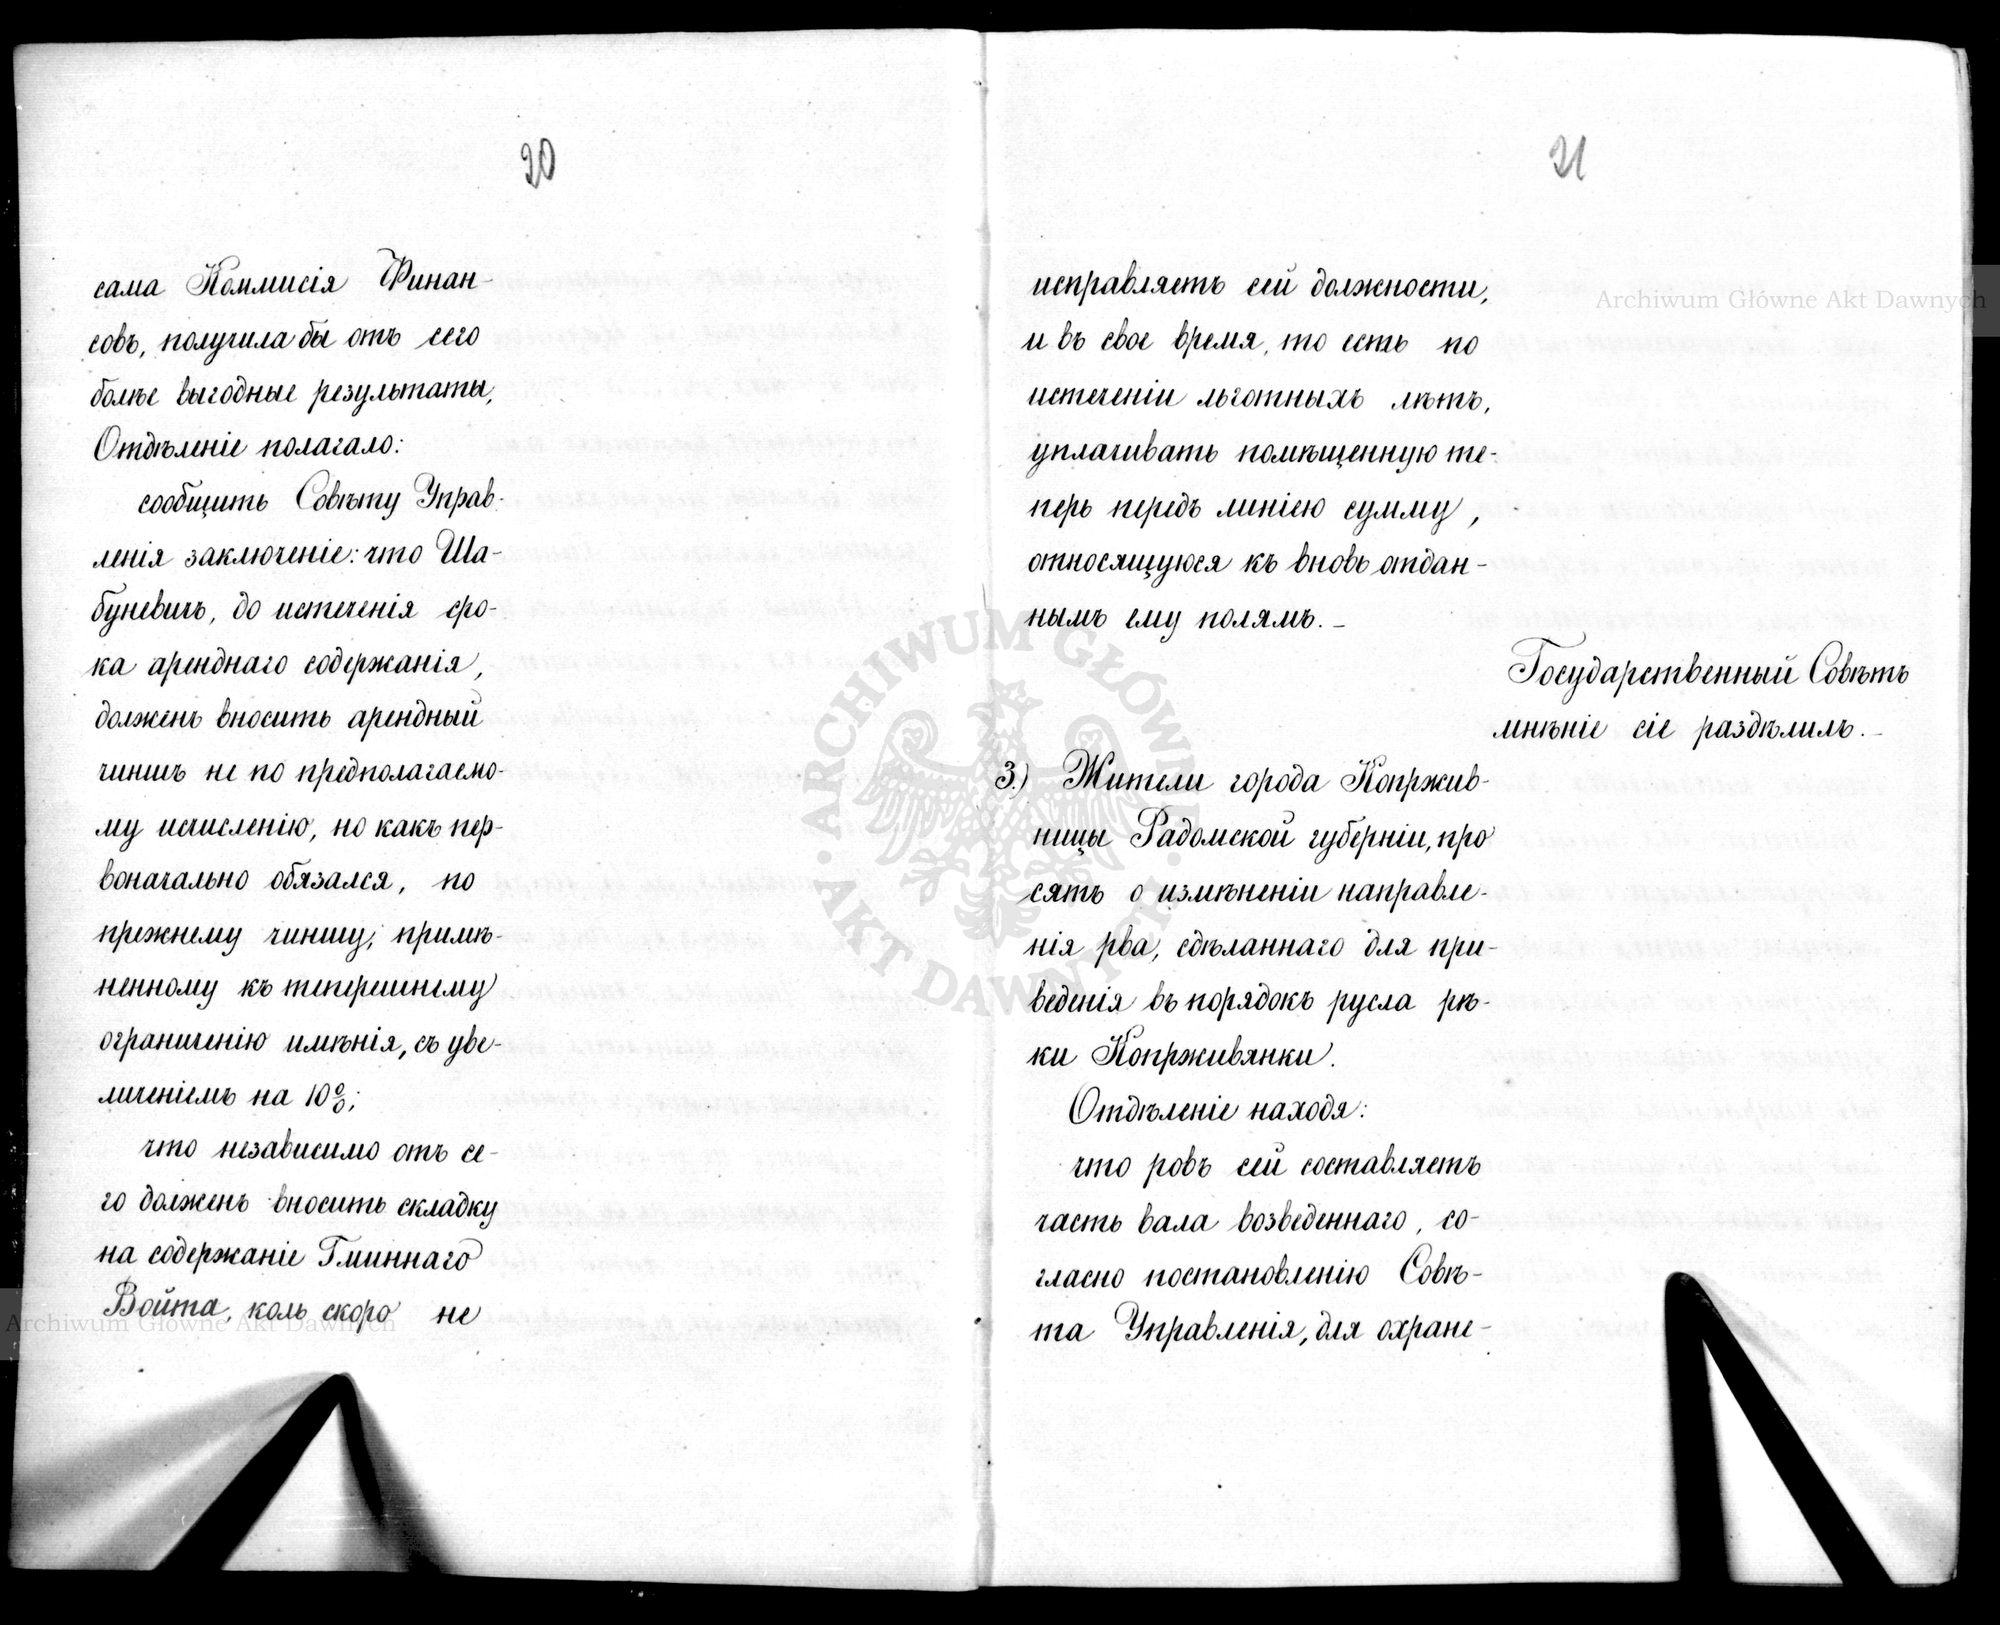 20
сама Коммисія Финан-
совъ, получила бы отъ сего
болѣе выгодные результаты,
Отдѣленіе полагало:
сообщить Совѣту Управ-
ленія заключеніе: что Ша-
буневичъ, до истеченія сро-
ка аренднаго содержанія,
долженъ вносить арендный
чиншъ не по предполагаемо-
му исчисленію, но какъ пер-
воначально обязался, по
прежнему чиншу, примѣ-
ненному къ теперешнему
ограниченію имѣнія, съ уве-
личеніемъ на 10%;
что независимо отъ се-
го долженъ вносить складку
на содержаніе Гминнаго
Войта, коль скоро не
21
исправляетъ сей должности,
и въ свое время, то есть по
истеченіи льготныхъ лѣтъ,
уплачивать помѣщенную те-
перь передъ линіею сумму,
относящуюся къ вновь отдан-
нымъ ему полямъ. –
Государственный Совѣтъ
мнѣніе сіе раздѣлилъ. –
3.) Жители города Копржив-
ницы Радомской губерніи, про
сятъ о измѣненіи направле-
нія рва, сдѣланнаго для при-
веденія въ порядокъ русла рѣ-
ки Копрживянки.
Отдѣленіе находя:
что ровъ сей составляетъ
часть вала возведеннаго, со-
гласно постановленію Совѣ-
та Управленія, для охране-
Archiwum Główne Akt Dawnych
Archiwum Główne Akt Dawnych
ARCHIWUM GŁÓWNE AKT DAWNYCH